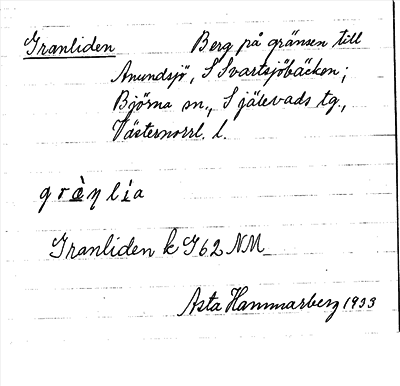 Granliden Berg på gränsen till
Anundsjö, S Svartsjöbäcken;
Björna sn., Själevads tg.,
Västernorrl. l.
grà̱ŋli̱a
Granliden k G62 NM
Asta Hammarberg 1933